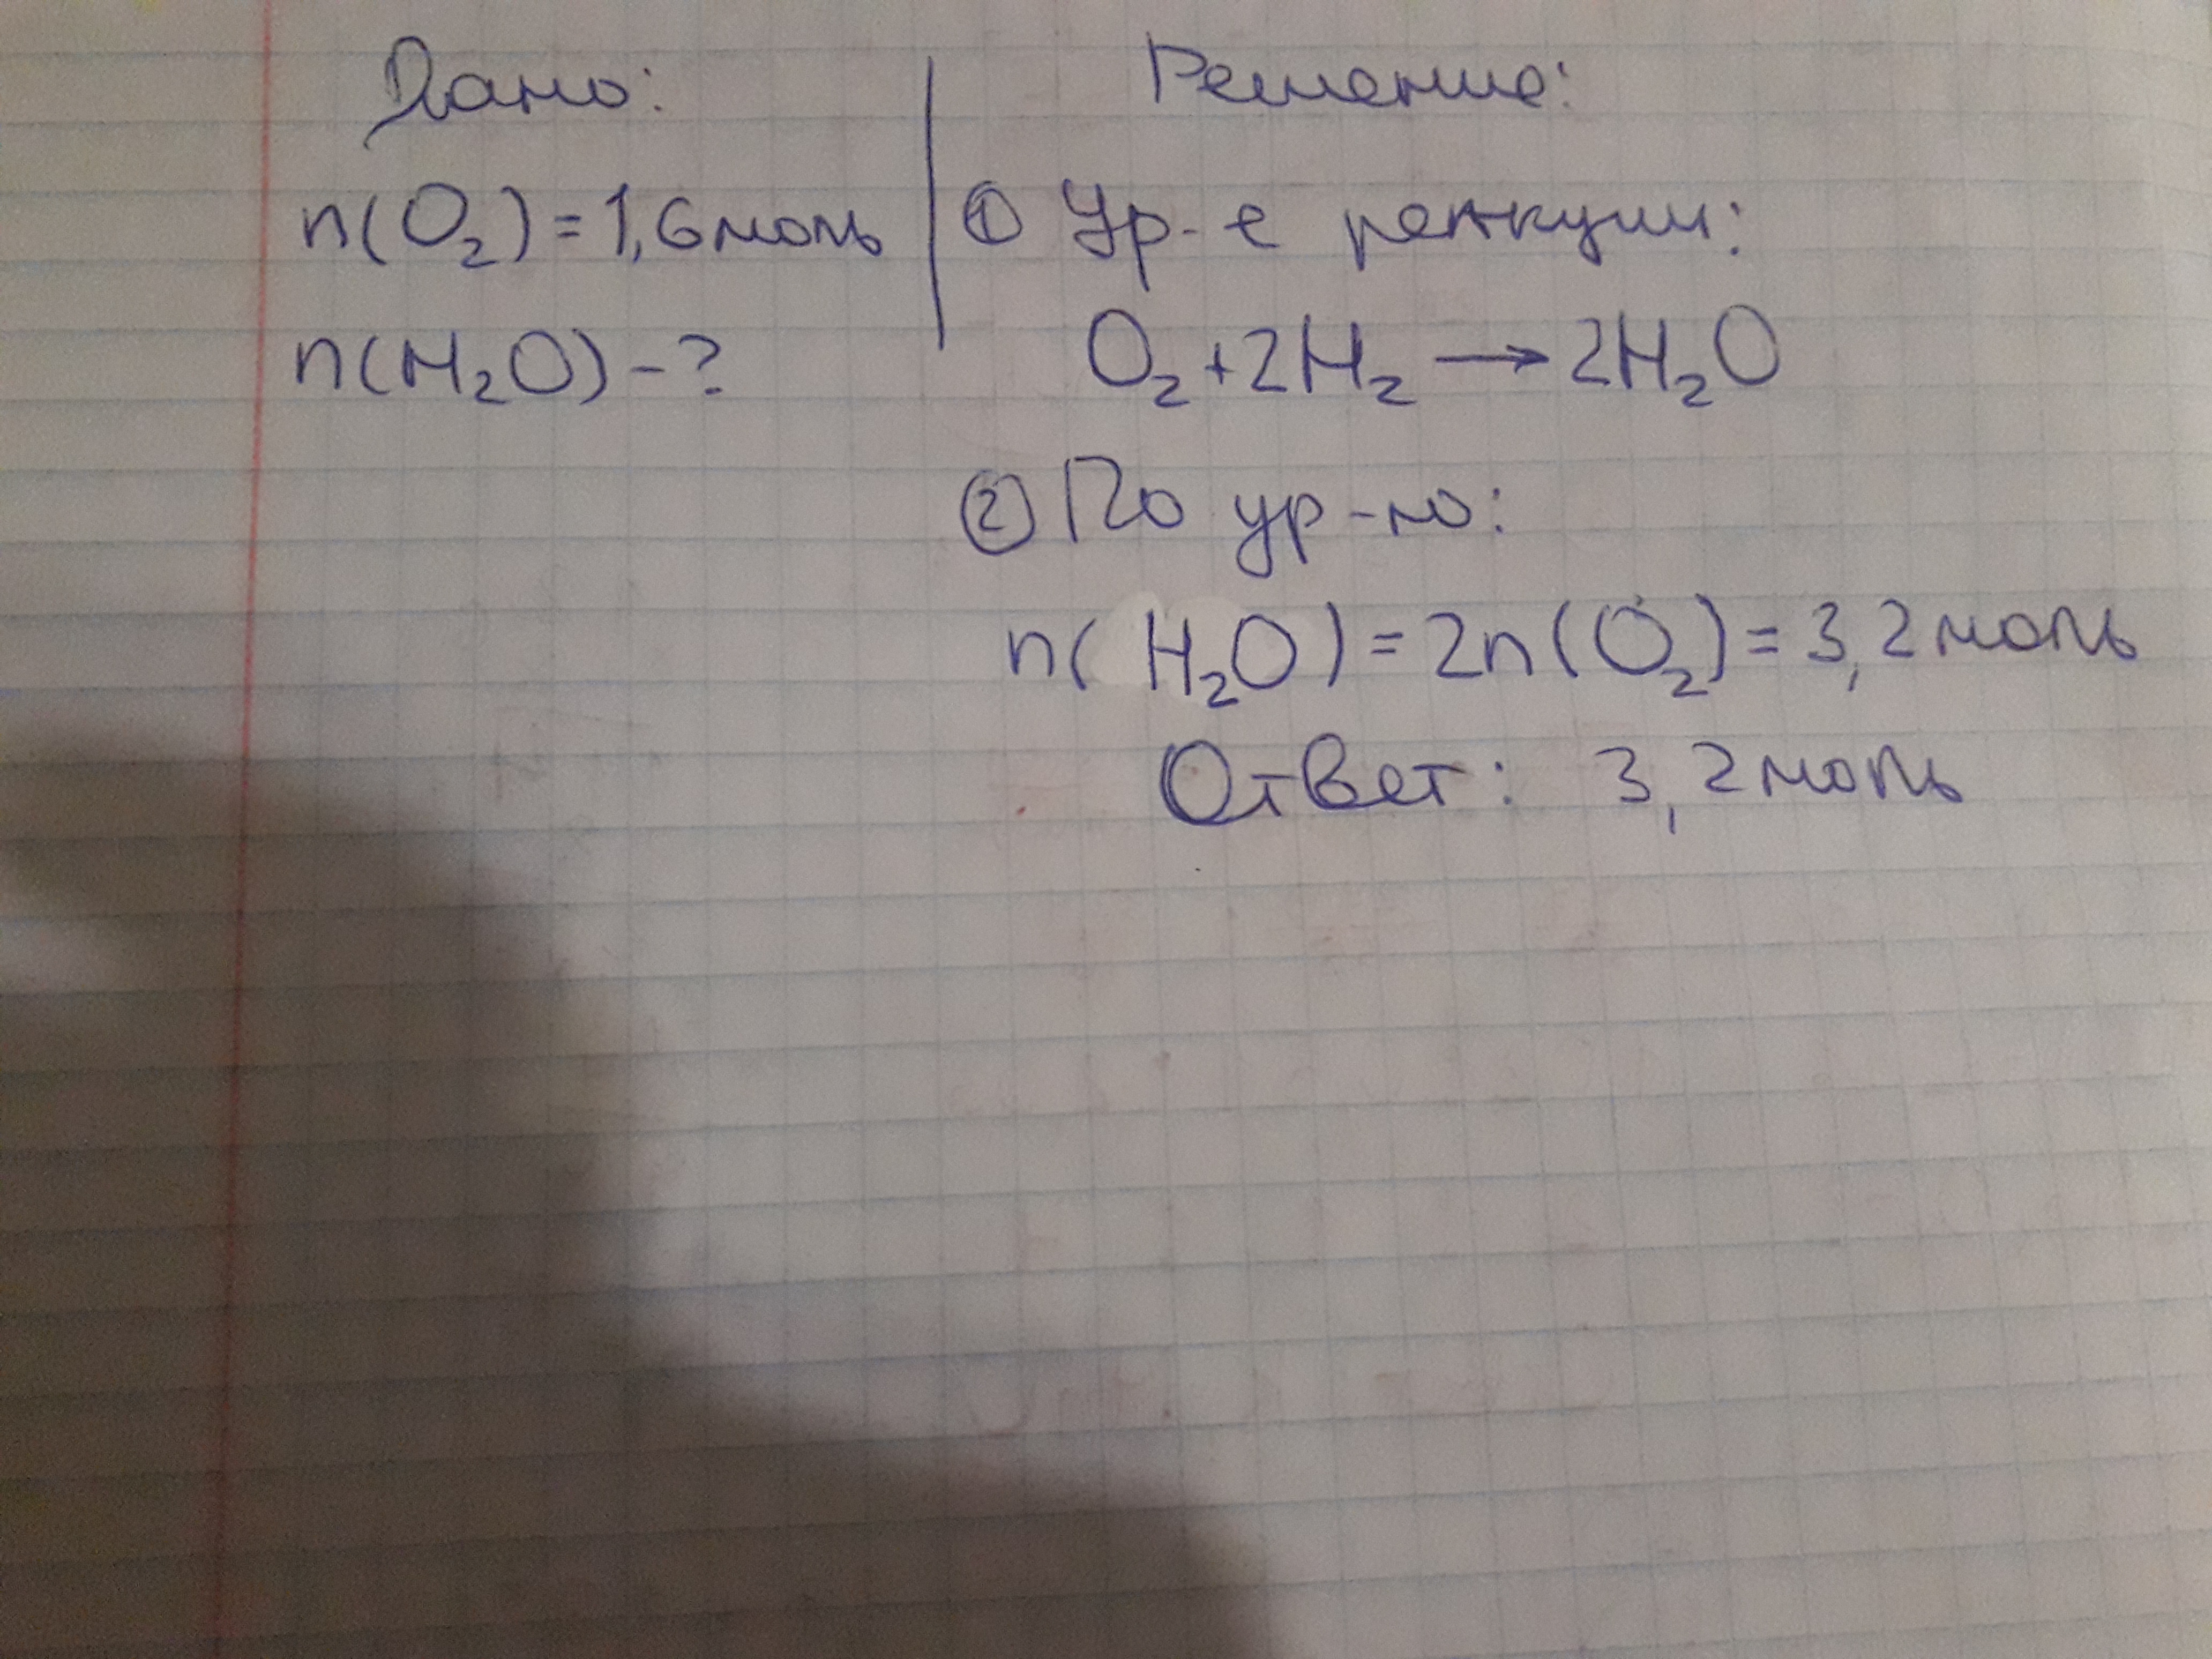 Дано:
n(O₂)=1,6моль
n(H₂O)-?
Решение:
① Ур-е реакции:
O₂+2H₂→2H₂O
② По ур-ю:
n(H₂O)=2n(O₂)=3,2моль
Ответ: 3,2моль